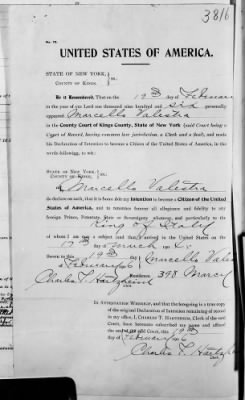 3816
No. 77.
UNITED STATES OF AMERICA.
STATE OF NEW YORK,
COUNTY OF KINGS. } ss.
Be it Remembered, That on the 19th day of Februar
in the year of our Lord one thousand nine hundred and six personally
appeared Marcello Valestra
in the County Court of Kings County, State of New York (said Court being a
Court of Record, having common law jurisdiction, a Clerk and a Seal), and made
his Declaration of Intention to become a Citizen of the United States of America, in the
words following, to wit:
STATE OF NEW YORK,
COUNTY OF KINGS, } ss.
I, Marcello Valestra
do declare on oath, that it is bona fide my Intention to become a Citizen of the United
States of America, and to renounce forever all allegiance and fidelity to any
foreign Prince, Potentate, State or Sovereignty whatever, and particularly to the
King of Italy
of whom I am now a subject and that I arrived in the United States on the
17th day of March
Sworn to this 19th Marcello Vales
of February 06 Residence, 398 Marcy
Charles T. Hartzheim
Clerk
IN ATTESTATION WHEREOF, and that the foregoing is a true copy
of the original Declaration of Intention remaining of record
in my office, I, CHARLES T. HARTZHEIM, Clerk of the said
Court, have hereunto subscribed my name and affixed
the seal of said Court, this 19th
day of February 190
Charles T. Hartzhe
Clerk